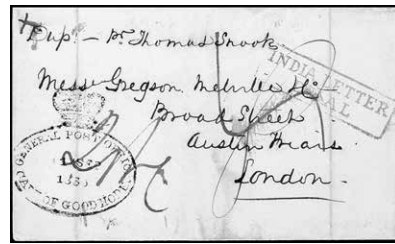 pr Thomas Snook
Messrs Gregson Melville &
Broad Street
Austin Friars
London
INDIA LETTER
GENERAL POST OFFICE
CAPE OF GOOD HOPE